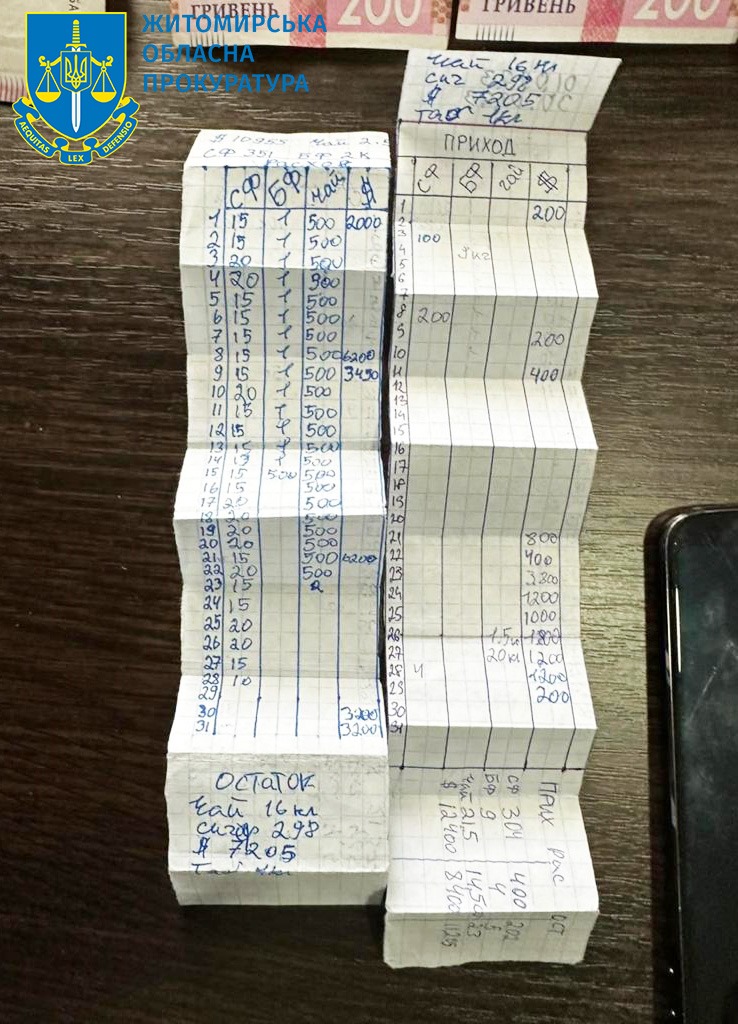 ЖИТОМИРСЬКА
ОБЛАСНА
ПРОКУРАТУРА
AEQUITAS LEX DEFENSIO
ГРИВЕНЬ 200
ГРИВЕНЬ 200
$ 10955 Чай 2.5
СФ 351 БФ 2К
СФ БФ чай $
1 15 1 500 2000
2 15 1 500
3 20 1 500
4 20 1 900
5 15 1 500
6 15 1 500
7 15 1 500
8 15 1 500 6200
9 15 1 500 3450
10 20 1 500
11 15 1 500
12 15 1 500
13 15 1 500
14 15 1 500
15 15 500 500
16 15 500
17 20 500
18 20 500
19 20 500
20 20 500
21 15 500 6200
22 20 500
23 15 2
24 15
25 20
26 20
27 15
28 10
29
30 3200
31 3200
ОСТАТОК
Чай 16 кл
сигар 298
$ 7205
Чай 16 кл
сиг 298
$ 7205
Таб 1кг
ПРИХОД
СФ БФ чай $
1 200
2
3 100
4 9кг
5
6
7
8 200
9 200
10
11 400
12
13
14
15
16
17
18
19
20
21 800
22 400
23 3300
24 1200
25 1000
26 1.5к 1800
27 20кл 1200
28 4 1200
29 200
30
31
ПРИХ рас ост
СФ 304 400 202
БФ 9 4 5
чай 21.5 14.500
$ 12400 8400 1125